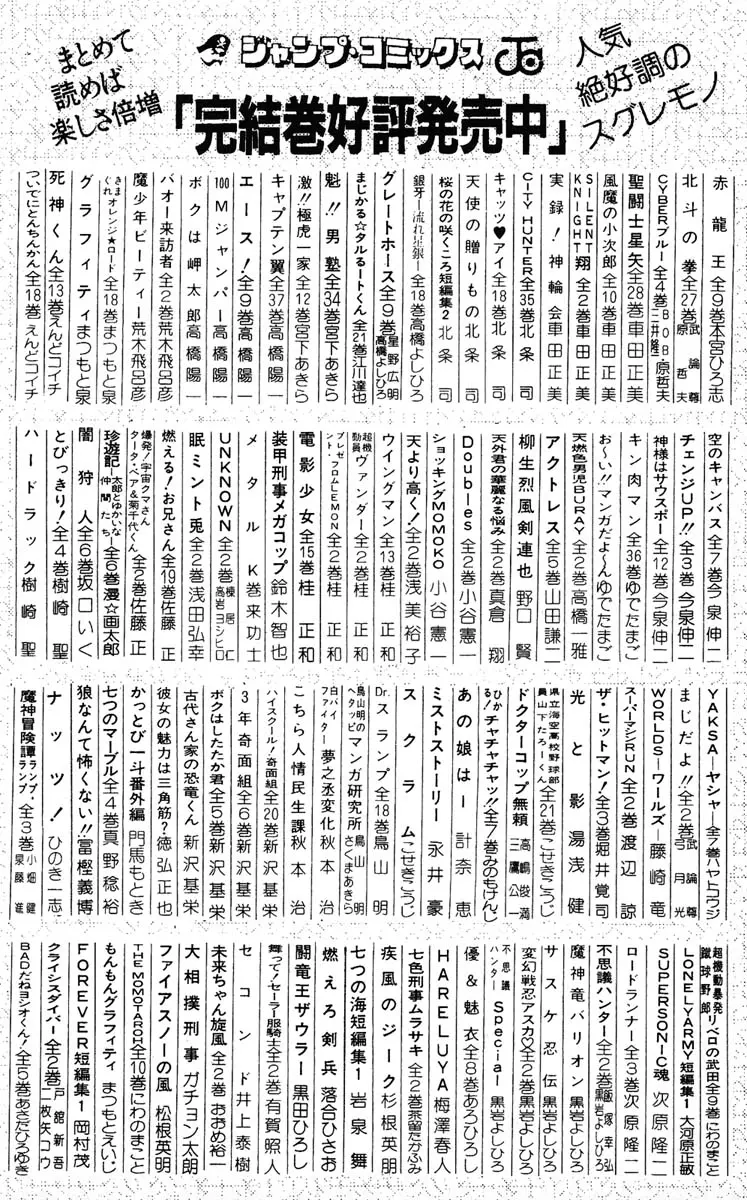 まとめて
読めば
楽しさ倍増
ジャンプ・コミックス
人気
絶好調の
スグレモノ
「完結巻好評発売中」
赤龍王 全9巻 本宮ひろ志
北斗の拳 全27巻 武論尊 原哲夫
CYBERブルー 全4巻 BOB・原哲夫 三井隆一
聖闘士星矢 全28巻 車田正美
風魔の小次郎 全10巻 車田正美
SILENT KNIGHT翔 全2巻 車田正美
実録!神輪会 車田正美
CITY HUNTER 全35巻 北条司
キャッツ♥アイ 全18巻 北条司
天使の贈りもの 北条司
桜の花の咲くころ 短編集2 北条司
銀牙―流れ星 銀― 全18巻 高橋よしひろ
グレートホース 全9巻 星野広明 高橋よしひろ
まじかる☆タルるートくん 全21巻 江川達也
魁!!男塾 全34巻 宮下あきら
激!!極虎一家 全12巻 宮下あきら
キャプテン翼 全37巻 高橋陽一
エース! 全9巻 高橋陽一
100Mジャンパー 高橋陽一
ボクは岬太郎 高橋陽一
バオー来訪者 全2巻 荒木飛呂彦
魔少年ビーティー 荒木飛呂彦
きまぐれオレンジ★ロード 全18巻 まつもと泉
グラフィティ まつもと泉
死神くん 全13巻 えんどコイチ
ついでにとんちんかん 全18巻 えんどコイチ
空のキャンバス 全7巻 今泉伸二
チェンジUP!! 全3巻 今泉伸二
神様はサウスポー 全12巻 今泉伸二
キン肉マン 全36巻 ゆでたまご
お〜い!!マンガだよ〜ん ゆでたまご
天燃色男児BURAY 全2巻 高橋一雅
アクトレス 全5巻 山田謙二
柳生烈風剣連也 野口賢
天外君の華麗なる悩み 全2巻 真倉翔
Doubles 全2巻 小谷憲一
ショッキングMOMOKO 小谷憲一
天より高く! 全2巻 浅美裕子
ウイングマン 全13巻 桂正和
超機動員ヴァンダー 全2巻 桂正和
プレゼント・フロムLEMON 全2巻 桂正和
電影少女 全15巻 桂正和
装甲刑事メガコップ 鈴木智也
メタルK 巻来功士
UNKNOWN 全2巻 棟居仁 高岩ヨシヒロ
眠兎 全2巻 浅田弘幸
燃える!お兄さん 全19巻 佐藤正
爆発!宇宙クマさん タータ・ベア&菊千代くん 全2巻 佐藤正
珍遊記―太郎とゆかいな仲間たち― 全6巻 漫☆画太郎
闇狩人 全6巻 坂口いく
とびっきり! 全4巻 樹崎聖
ハードラック 樹崎聖
YAKSA―ヤシャ 全7巻 ハヤトコウジ
まじだよ!! 全2巻 武論尊 弓月光
WORLDS―ワールズ― 藤崎竜
スーパーマシンRUN 全2巻 渡辺諒
ザ・ヒットマン! 全3巻 堀井覚司
光と影 湯浅健
県立海空高校野球部員山下たろーくん 全21巻 こせきこうじ
ドクターコップ無頼 高嶋俊満 三鷹公一
ひかる!チャチャチャッ!! 全7巻 みのもけんじ
あの娘はー 計奈恵
ミストストーリー 永井豪
スクラム こせきこうじ
Dr.スランプ 全18巻 鳥山明
鳥山明のヘタッピマンガ研究所 鳥山明 さくまあきら
白バイファイター 夢之丞変化 秋本治
こちら人情民生課 秋本治
ハイスクール!奇面組 全20巻 新沢基栄
3年奇面組 全6巻 新沢基栄
ボクはしたたか君 全5巻 新沢基栄
古代さん家の恐竜くん 新沢基栄
彼女の魅力は三角筋? 徳弘正也
かっとび一斗番外編 門馬もとき
七つのマーブル 全4巻 真野稔裕
狼なんて怖くない!! 冨樫義博
ナッツ! ひのき一志
魔神冒険譚ランプ・ランプ 全3巻 小畑健 泉藤進
超機動暴発蹴球野郎 リベロの武田 全9巻 にわのまこと
LONELY ARMY 短編集1 大河原正敏
SUPERSONIC魂 次原隆二
ロードランナー 全3巻 次原隆二
不思議ハンター 全2巻 飯塚幸弘 黒岩よしひろ
魔神竜バリオン 黒岩よしひろ
サスケ忍伝 黒岩よしひろ
変幻戦忍アスカ♡ 全2巻 黒岩よしひろ
不思議ハンターSpecial 黒岩よしひろ
優&魅衣 全8巻 あろひろし
HARELUYA 梅澤春人
七色刑事ムラサキ 全2巻 茶留たかふみ
疾風のジーク 杉根英明
七つの海 短編集1 岩泉舞
燃えろ剣兵 落合ひさお
闘竜王ザウラー 黒田ひろし
舞って!セーラー服騎士 全2巻 有賀照人
セコンド 井上泰樹
未来ちゃん旋風 全2巻 おおめ裕一
大相撲刑事 ガチョン太朗
ファイアスノーの風 松根英明
THE MOMOTAROH 全10巻 にわのまこと
もんもんグラフィティ まつもとえいじ
FOREVER 短編集1 岡村茂
クライシスダイバー 全2巻 戸舘新吾 二枚矢コウ
BADだねヨシオくん! 全5巻 あさだひろゆき